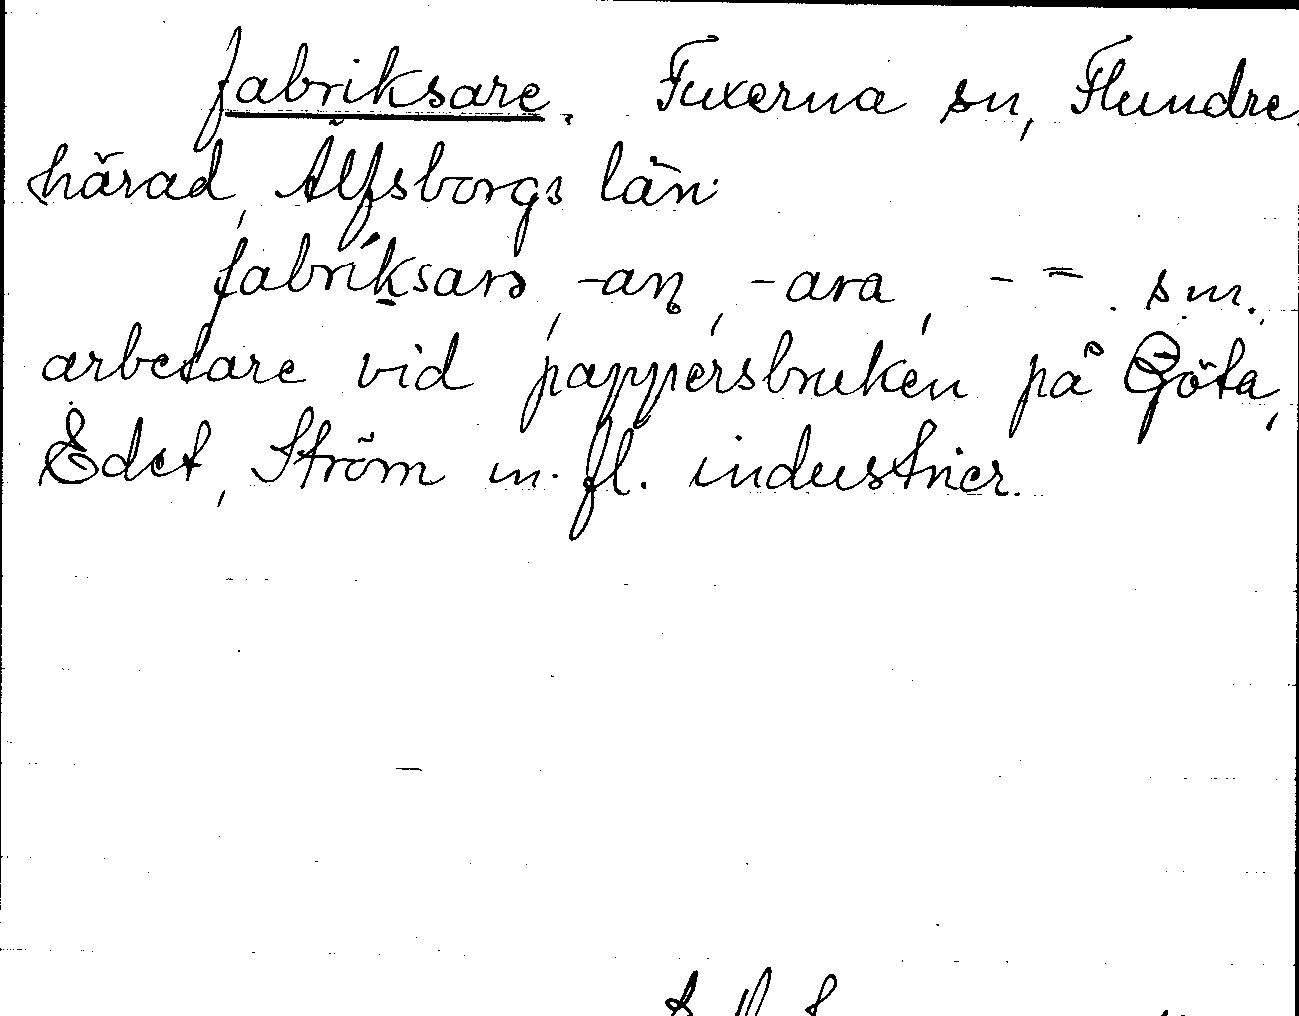 fabriksare. Fuxerna sn, Flundre
härad, Älfsborgs län.
fabríksarə, -aṇ, -ara, - = . sm.
arbetare vid pappersbruken på Göta,
Edet, Ström m. fl. industrier.